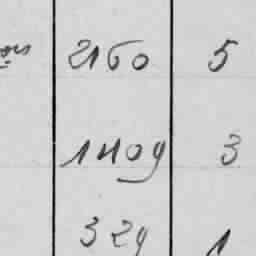 2160 5
1409 3
329 1